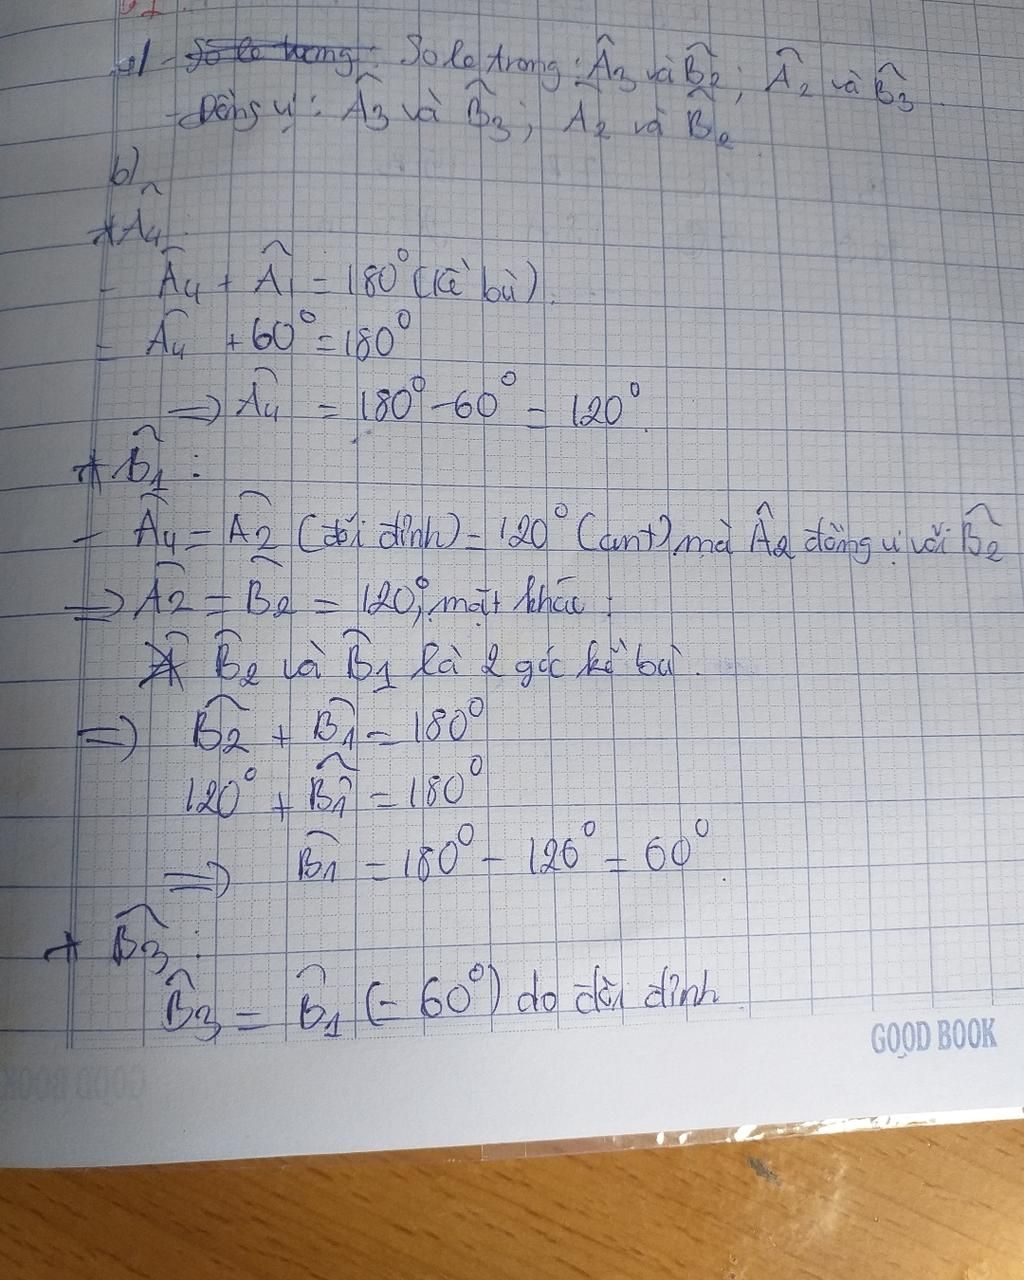 a) - So le trong: Â3 và B̂2; Â2 và B̂3
- Đồng vị: Â3 và B̂3; Â2 và B̂2
b)
* Â4:
- Â4 + Â1 = 180° (kề bù).
= Â4 + 60° = 180°
=> Â4 = 180° - 60° = 120°.
* B̂1:
- Â4 = Â2 (đối đỉnh) = 120° (cmt) mà Â2 đồng vị với B̂2
=> Â2 = B̂2 = 120°, mặt khác:
B̂2 và B̂1 là 2 góc kề bù.
=> B̂2 + B̂1 = 180°
120° + B̂1 = 180°
=> B̂1 = 180° - 120° = 60°.
+ B̂3:
B̂3 = B̂1 (= 60°) do đối đỉnh.
GOOD BOOK